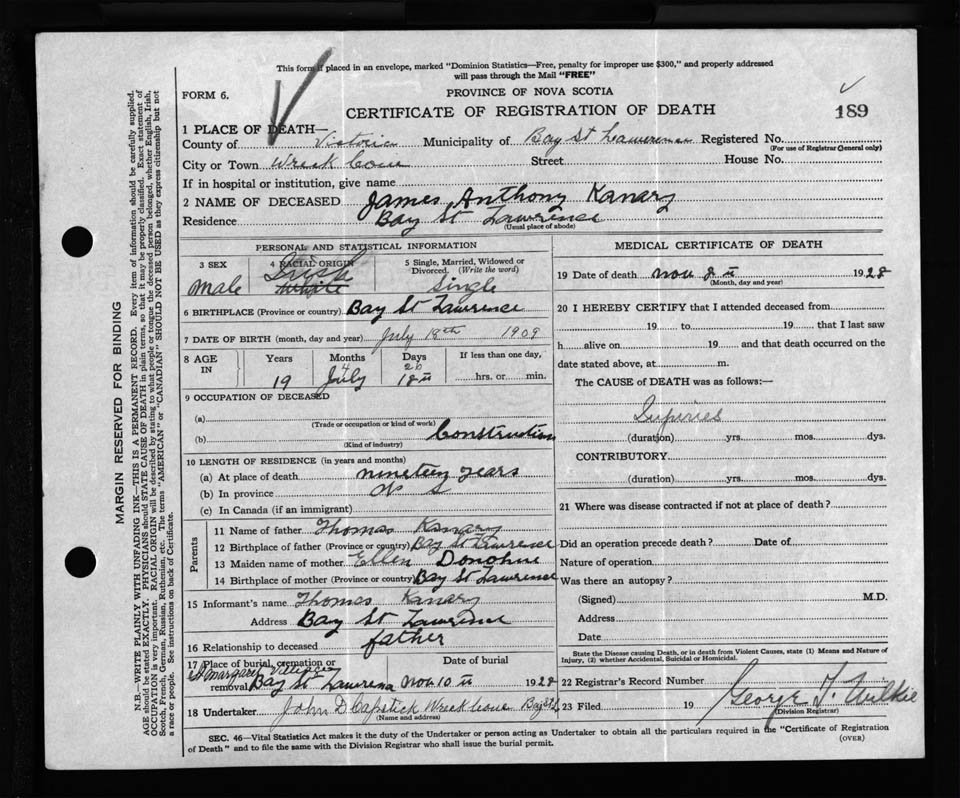 This form if placed in an envelope, marked "Dominion Statistics—Free, penalty for improper use $300," and properly addressed
will pass through the Mail "FREE"
FORM 6.
PROVINCE OF NOVA SCOTIA
CERTIFICATE OF REGISTRATION OF DEATH
189
1 PLACE OF DEATH—
County of Victoria Municipality of Bay St Lawerence Registered No.
(For use of Registrar General only)
City or Town Wreck Cove Street House No.
If in hospital or institution, give name
2 NAME OF DECEASED James Anthony Kanary
Residence Bay St Lawrence
(Usual place of abode)
PERSONAL AND STATISTICAL INFORMATION
3 SEX 4 RACIAL ORIGIN 5 Single, Married, Widowed or Divorced. (Write the word)
Male Irish White Single
6 BIRTHPLACE (Province or country) Bay St Lawrence
7 DATE OF BIRTH (month, day and year) July 18th 1909
8 AGE IN Years Months Days If less than one day,
19 4 July 26 18 hrs. or min.
9 OCCUPATION OF DECEASED
(a)
(Trade or occupation or kind of work)
(b) Construction
(Kind of industry)
10 LENGTH OF RESIDENCE (in years and months)
(a) At place of death nineteen years
(b) In province N S
(c) In Canada (if an immigrant)
Parents
11 Name of father Thomas Kanary
12 Birthplace of father (Province or country) Bay St Lawrence
13 Maiden name of mother Ellen Donohue
14 Birthplace of mother (Province or country) Bay St Lawrence
15 Informant's name Thomas Kanary
Address Bay St Lawrence
16 Relationship to deceased father
17 Place of burial, cremation or Date of burial
St Margaret Village
removal Bay St Lawrence Nov 10 1928
18 Undertaker John D Capstick Wreck Cove Bay St L
(Name and address)
MEDICAL CERTIFICATE OF DEATH
19 Date of death Nov 8 1928
(Month, day and year)
20 I HEREBY CERTIFY that I attended deceased from
19 to 19 that I last saw
h alive on 19 and that death occurred on the
date stated above, at m.
The CAUSE of DEATH was as follows:—
Injuries
(duration) yrs. mos. dys.
CONTRIBUTORY
(duration) yrs. mos. dys.
21 Where was disease contracted if not at place of death?
Did an operation precede death? Date of
Nature of operation
Was there an autopsy?
(Signed) M.D.
Address
Date
State the Disease causing Death, or in death from Violent Causes, state (1) Means and Nature of
Injury, (2) whether Accidental, Suicidal or Homicidal.
22 Registrar's Record Number
23 Filed 19 George T. Wilkie
(Division Registrar)
SEC. 46—Vital Statistics Act makes it the duty of the Undertaker or person acting as Undertaker to obtain all the particulars required in the "Certificate of Registration
of Death" and to file the same with the Division Registrar who shall issue the burial permit.
(OVER)
MARGIN RESERVED FOR BINDING
N.B.—WRITE PLAINLY WITH UNFADING INK—THIS IS A PERMANENT RECORD. Every item of information should be carefully supplied.
AGE should be stated EXACTLY. PHYSICIANS should STATE CAUSE OF DEATH in plain terms, so that it may be properly classified. Exact statement of
OCCUPATION is very important. RACIAL ORIGIN will be described by stating to what people or tongue the deceased person belonged, whether English, Irish,
Scotch, French, German, Russian, Ruthenian, etc. The terms "AMERICAN" or "CANADIAN" SHOULD NOT BE USED as they express citizenship but not
a race or people. See instructions on back of Certificate.